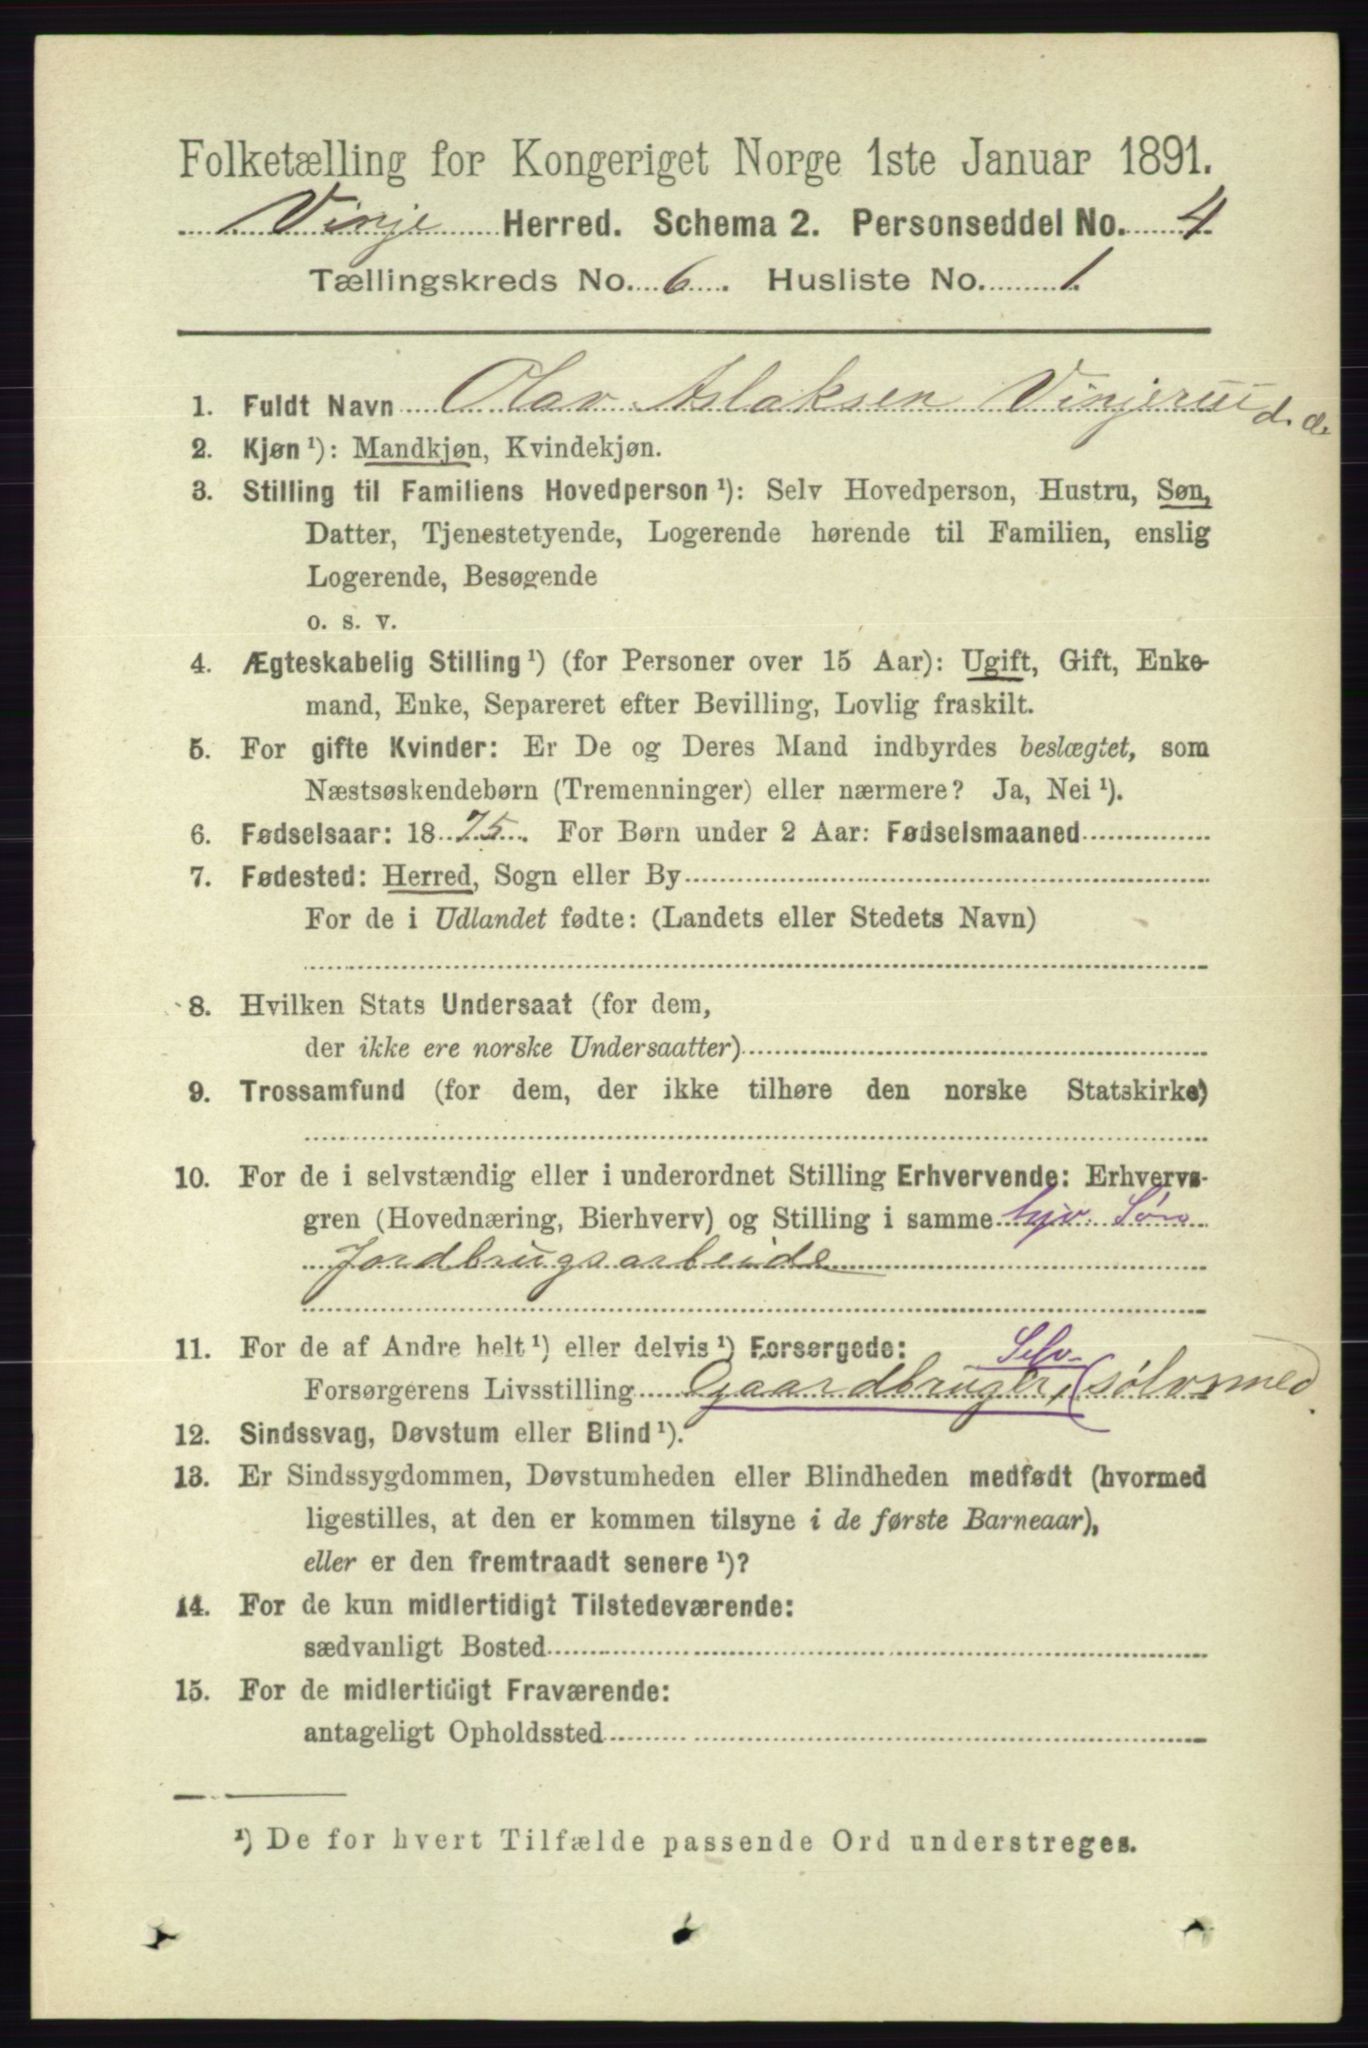 Folketælling for Kongeriget Norge 1ste Januar 1891.
Vinje Herred. Schema 2. Personseddel No. 4
Tællingskreds No. 6. Husliste No. 1.
1. Fuldt Navn Olav Aslaksen Vinjerui d.d.
2. Kjøn ¹): Mandkjøn, Kvindekjøn.
3. Stilling til Familiens Hovedperson ¹): Selv Hovedperson, Hustru, Søn,
Datter, Tjenestetyende, Logerende hørende til Familien, enslig
Logerende, Besøgende
o. s. v.
4. Ægteskabelig Stilling ¹) (for Personer over 15 Aar): Ugift, Gift, Enke-
mand, Enke, Separeret efter Bevilling, Lovlig fraskilt.
5. For gifte Kvinder: Er De og Deres Mand indbyrdes beslægtet, som
Næstsøskendebørn (Tremenninger) eller nærmere? Ja, Nei ¹).
6. Fødselsaar: 1875. For Børn under 2 Aar: Fødselsmaaned
7. Fødested: Herred, Sogn eller By
For de i Udlandet fødte: (Landets eller Stedets Navn)
8. Hvilken Stats Undersaat (for dem,
der ikke ere norske Undersaatter)
9. Trossamfund (for dem, der ikke tilhøre den norske Statskirke)
10. For de i selvstændig eller i underordnet Stilling Erhvervende: Erhvervs-
gren (Hovednæring, Bierhverv) og Stilling i samme hjv. Søn
Jordbrugsarbeide
11. For de af Andre helt ¹) eller delvis ¹) Forsørgede: Selv-
Forsørgerens Livsstilling Gaardbruger, (sølvsmed.
12. Sindssvag, Døvstum eller Blind ¹).
13. Er Sindssygdommen, Døvstumheden eller Blindheden medfødt (hvormed
ligestilles, at den er kommen tilsyne i de første Barneaar),
eller er den fremtraadt senere ¹)?
14. For de kun midlertidigt Tilstedeværende:
sædvanligt Bosted
15. For de midlertidigt Fraværende:
antageligt Opholdssted
¹) De for hvert Tilfælde passende Ord understreges.